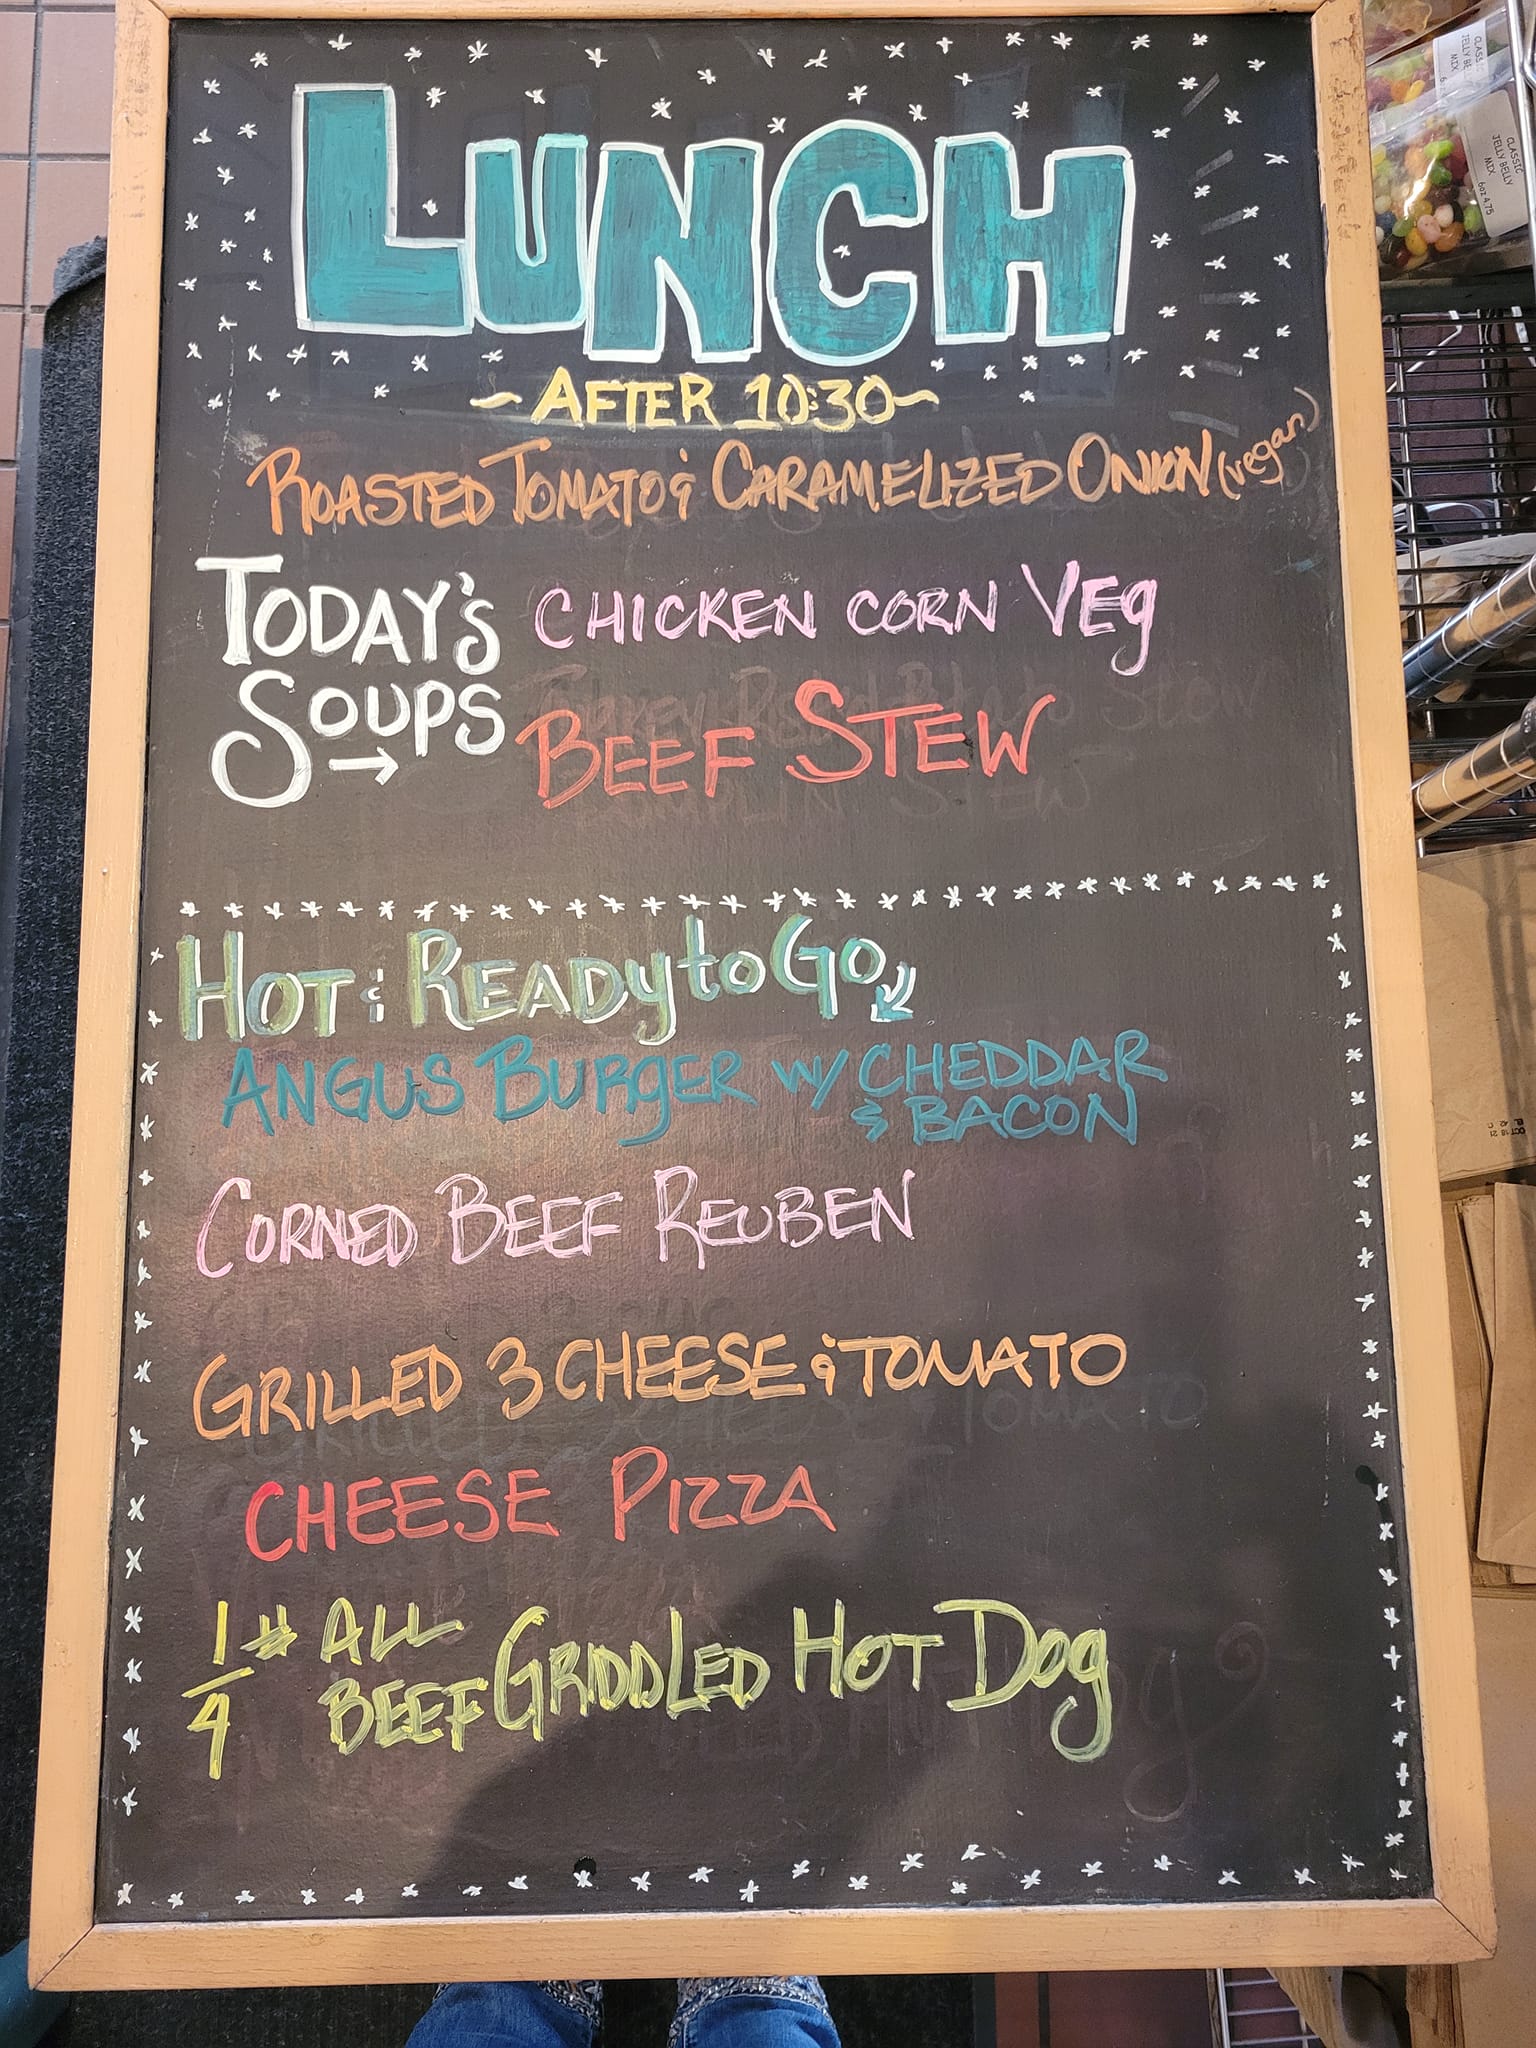 LUNCH
~AFTER 10:30~
ROASTED TOMATO & CARAMELIZED ONION (vegan)
TODAY'S
SOUPS →
CHICKEN CORN VEg
BEEF STEW
HOT & READy to GO
ANGUS BURgER W/ CHEDDAR
& BACON
CORNED BEEF REUBEN
GRILLED 3 CHEESE & TOMATO
CHEESE PIZZA
1/4 # ALL
BEEF GRIDDLED HOT Dog
CLASSIC
JELLY BELLY
MIX
CLASSIC
JELLY BELLY
MIX 6oz 4.75